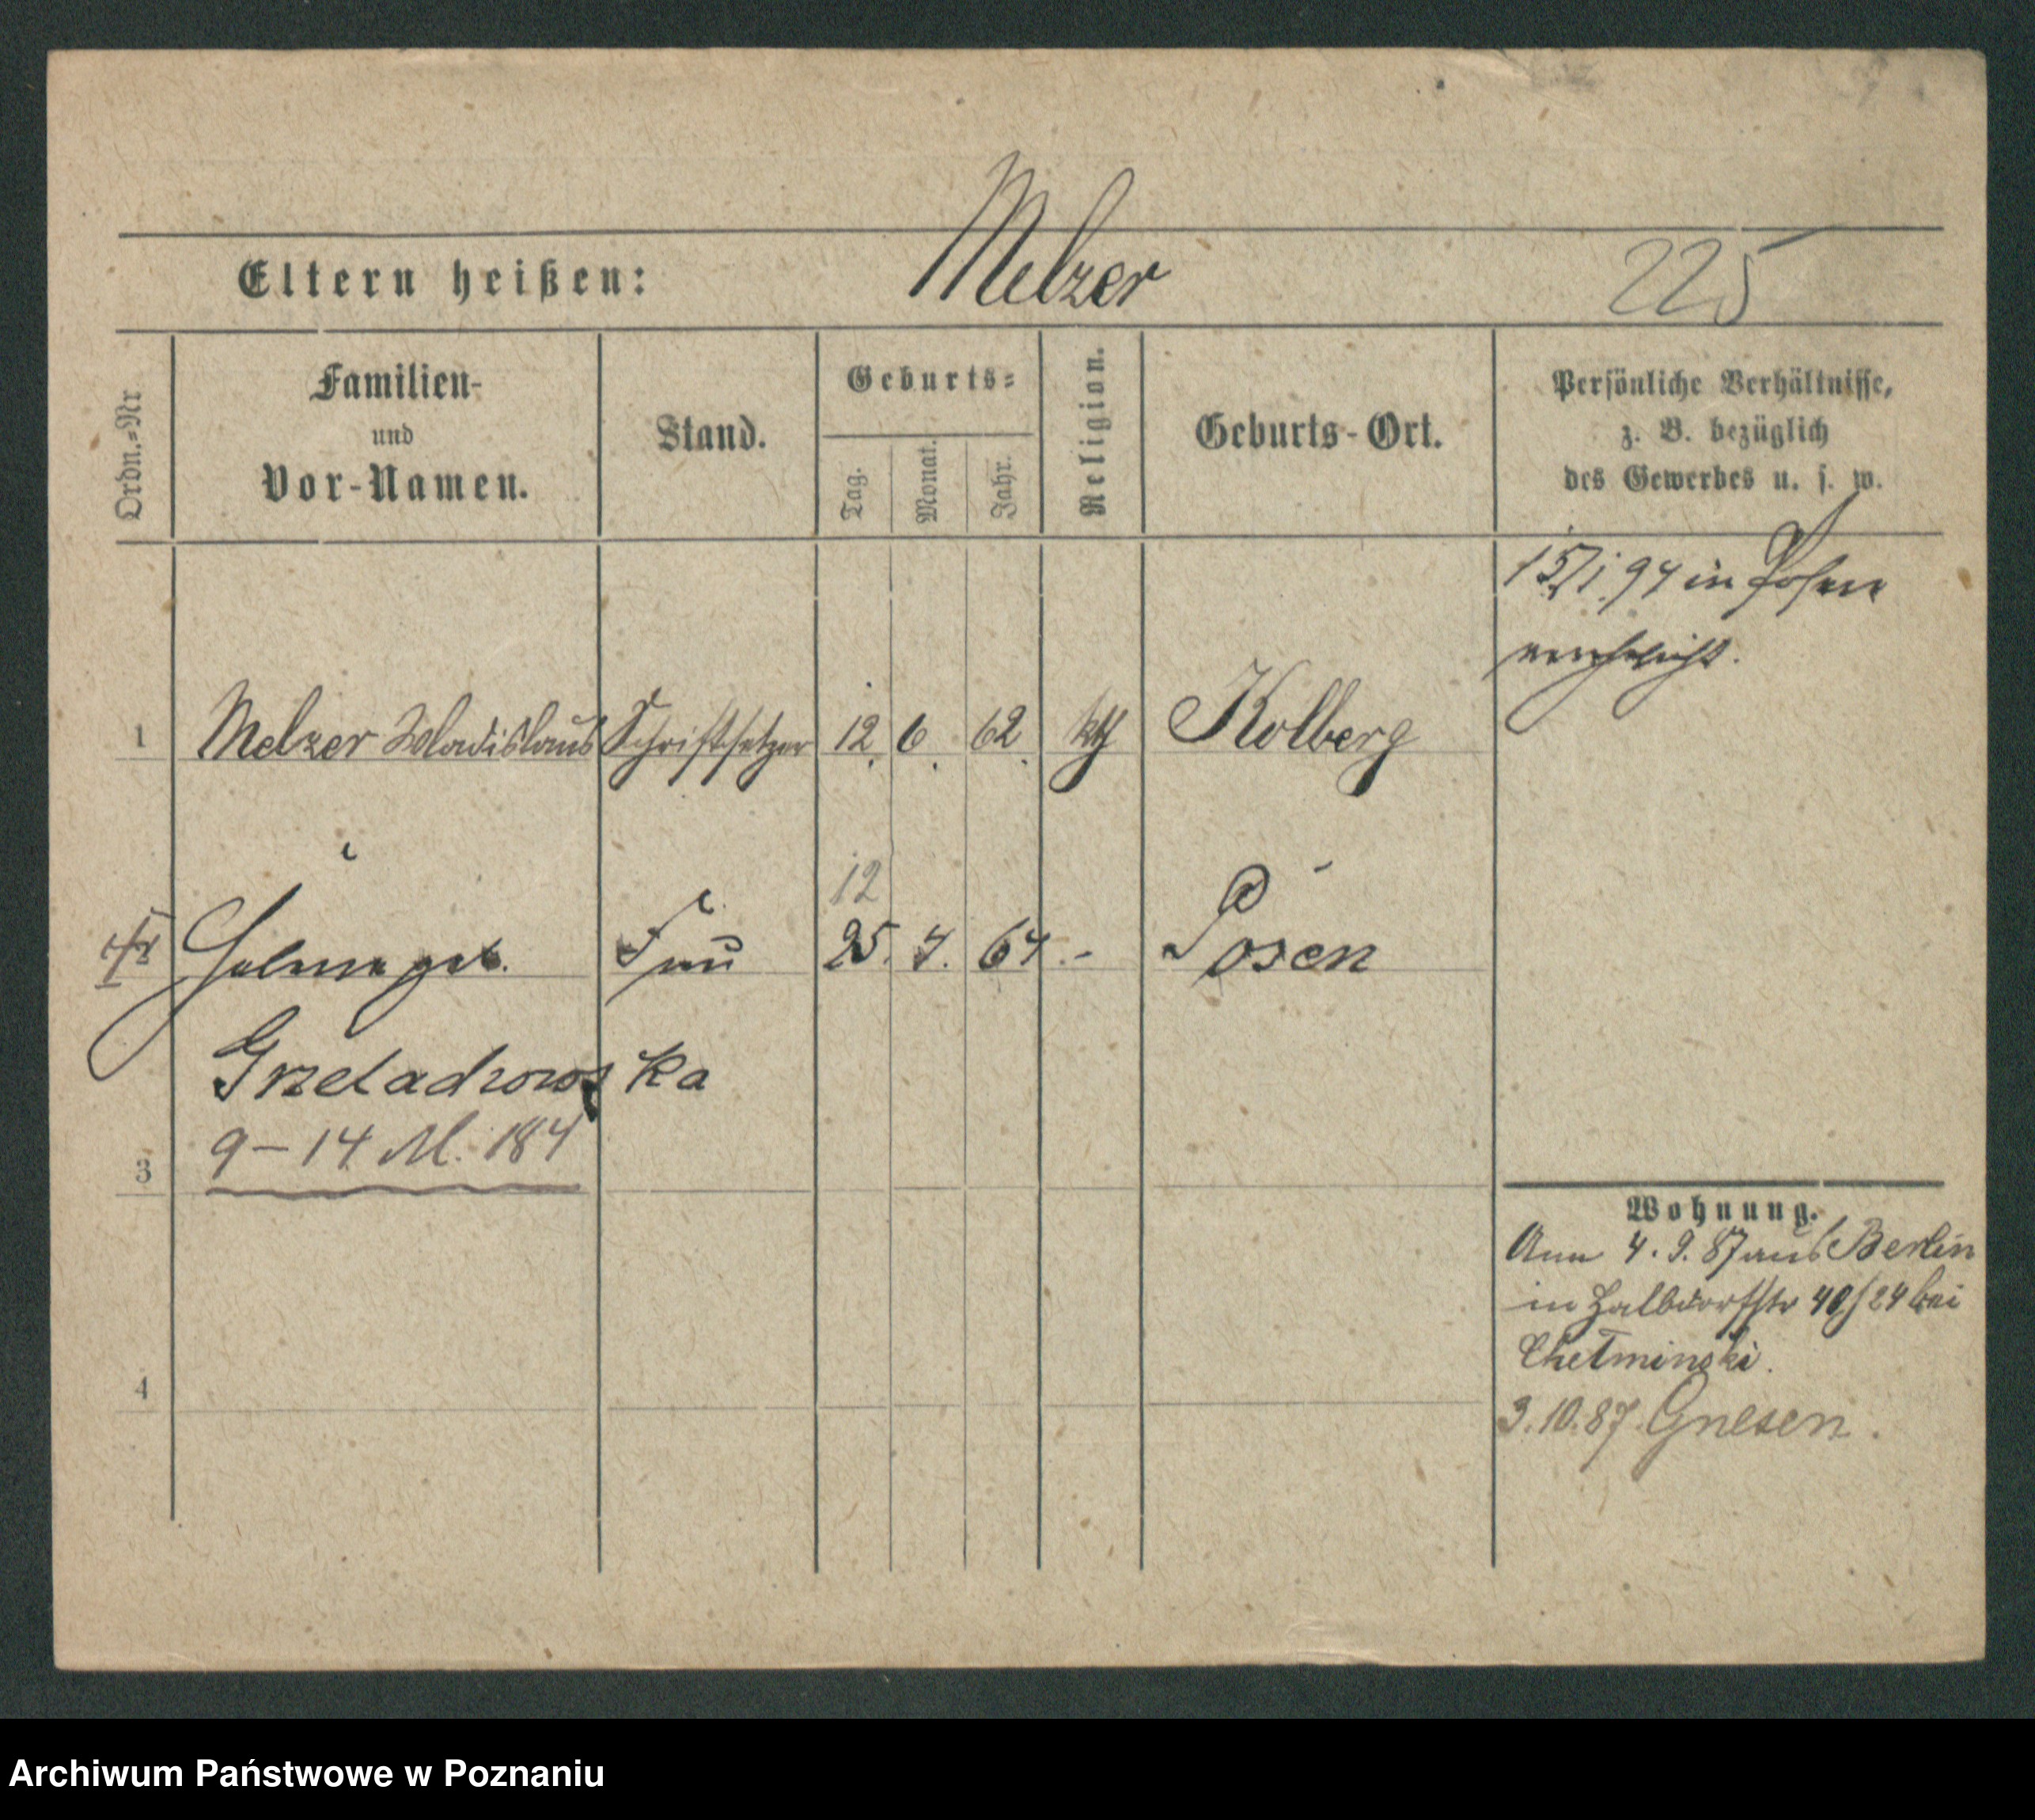 Melzer
Eltern heißen: 225
Ordn.-Nr
Familien-
und
Vor-Namen.
Stand.
Geburts-
Tag. Monat. Jahr.
Religion.
Geburts-Ort.
Persönliche Verhältnisse,
z. B. bezüglich
des Gewerbes u. s. w.
15/1.94 in Posen
verehelicht.
1 Melzer Wladislaus Schriftsetzer 12. 6. 62. kth Kolberg
12
Fr geb. Frau 25. 4. 64. - Posen
ka
9-14 M. 184
3
Wohnung.
4. 9. 87 aus Berlin
in Halbdorfstr 40/24 bei
Chełminski.
4
3.10.87 Gnesen.
Archiwum Państwowe w Poznaniu